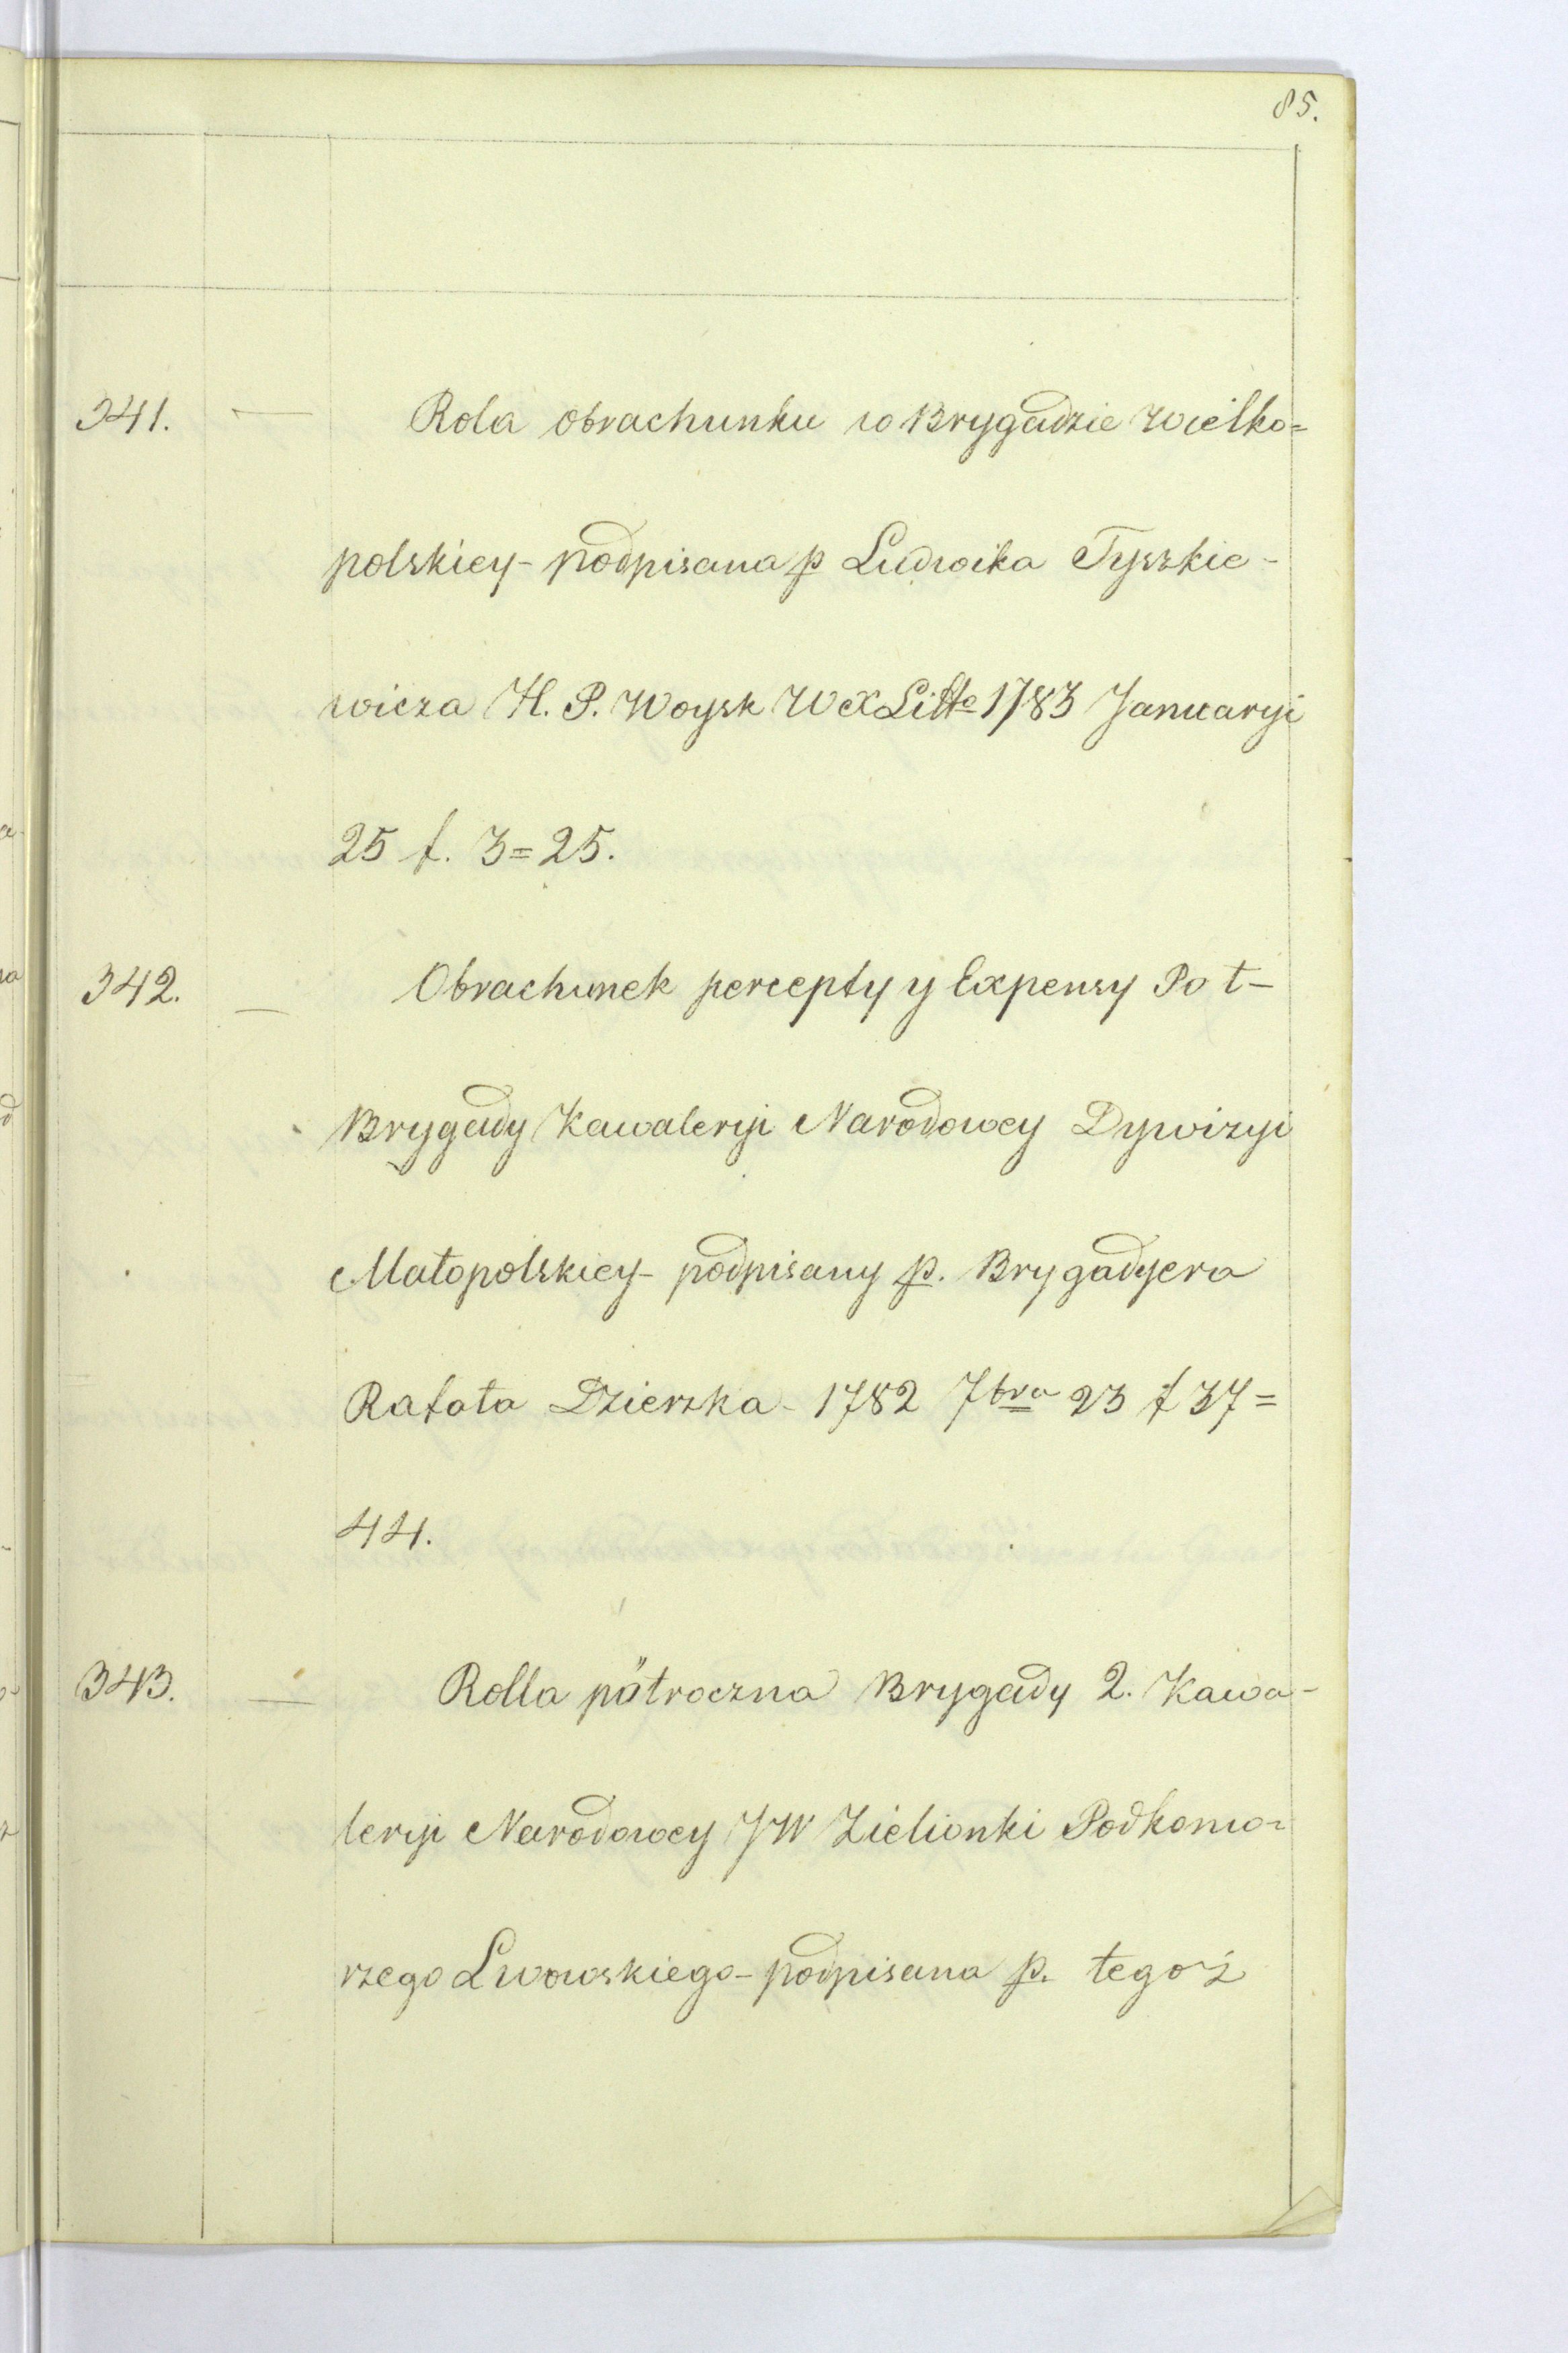 85.
341. — Rola obrachunku w Brygadzie Wielko=
polskiey - podpisana p Ludwika Tyszkie-
wicza H. P. Woysk W X Litto 1783 Januaryi
25 f. 3=25.
342. — Obrachunek percepty y Expensy Po ł-
Brygady Kawaleryi Narodowey Dywizyi
Małopolskiey - podpisany p. Brygadyera
Rafała Dzierzka - 1782 7bra 23 f 37=
44.
343. — Rolla półroczna Brygady 2. Kawa-
leryi Narodowey JW Zielionki Podkomo-
rzego Lwowskiego - podpisana p. tegoż